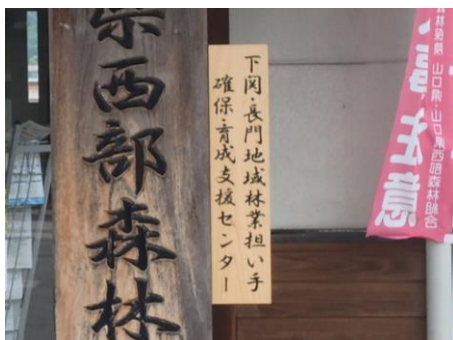 県西部森林
下関・長門地域林業担い手
確保・育成支援センター
注意
山口県・山口県西部森林組合